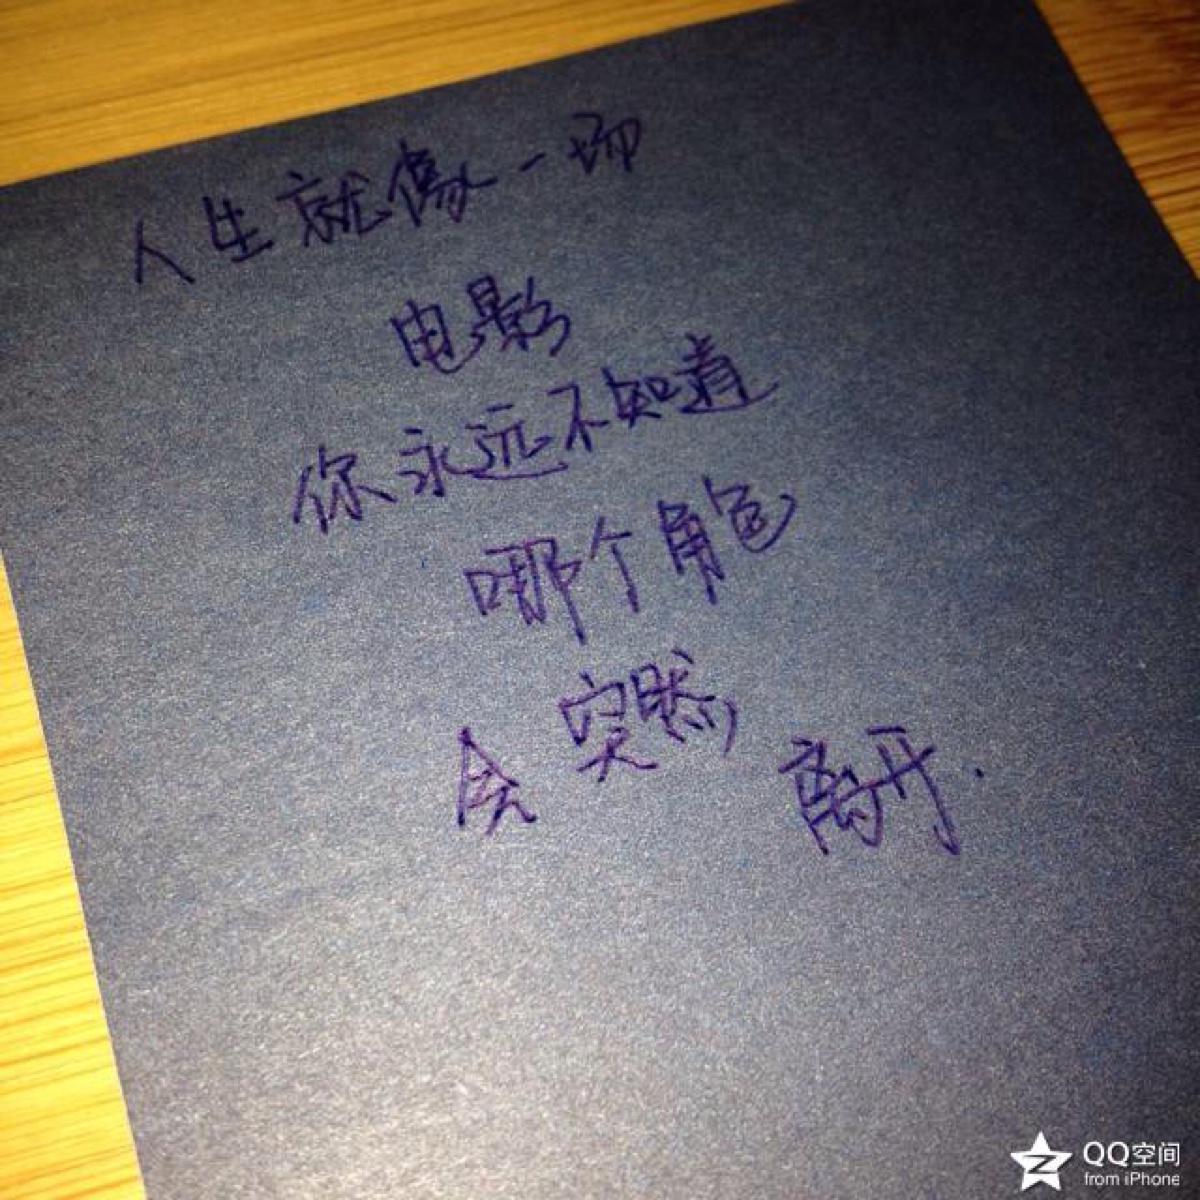 人生就像一场
电影
你永远不知道
哪个角色
会突然离开.
QQ空间
from iPhone